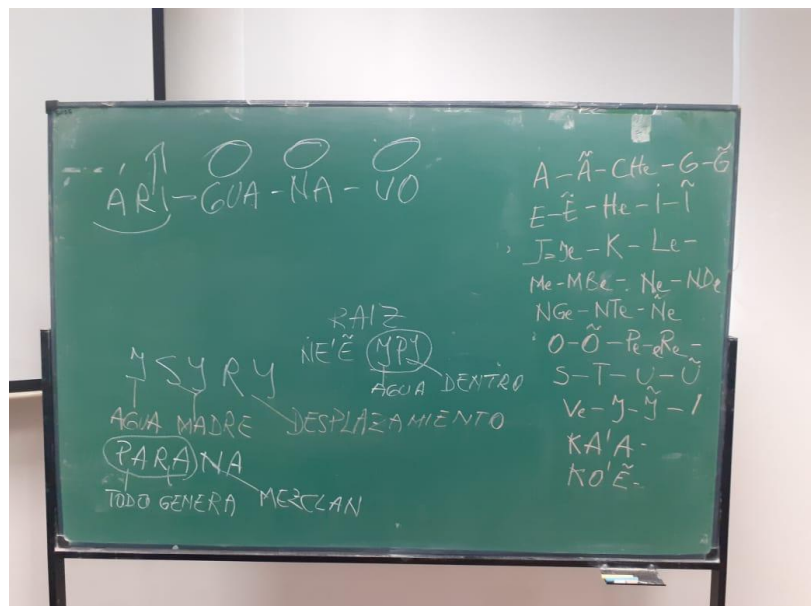 ÁRI-GUA-NA-VO
RAIZ
ÑE'Ẽ YPY
AGUA DENTRO
YSYRY
AGUA MADRE DESPLAZAMIENTO
PARANA
TODO GENERA MEZCLAN
A-Ã-CHe-G-G̃
E-Ẽ-He-i-Ĩ
J=Ye-K-Le-
Me-MBe-Ne-NDe
NGe-NTe-Ñe
O-Õ-Pe-Re-
S-T-U-Ũ
Ve-Y-Ỹ-'
KA'A-
KO'Ẽ-